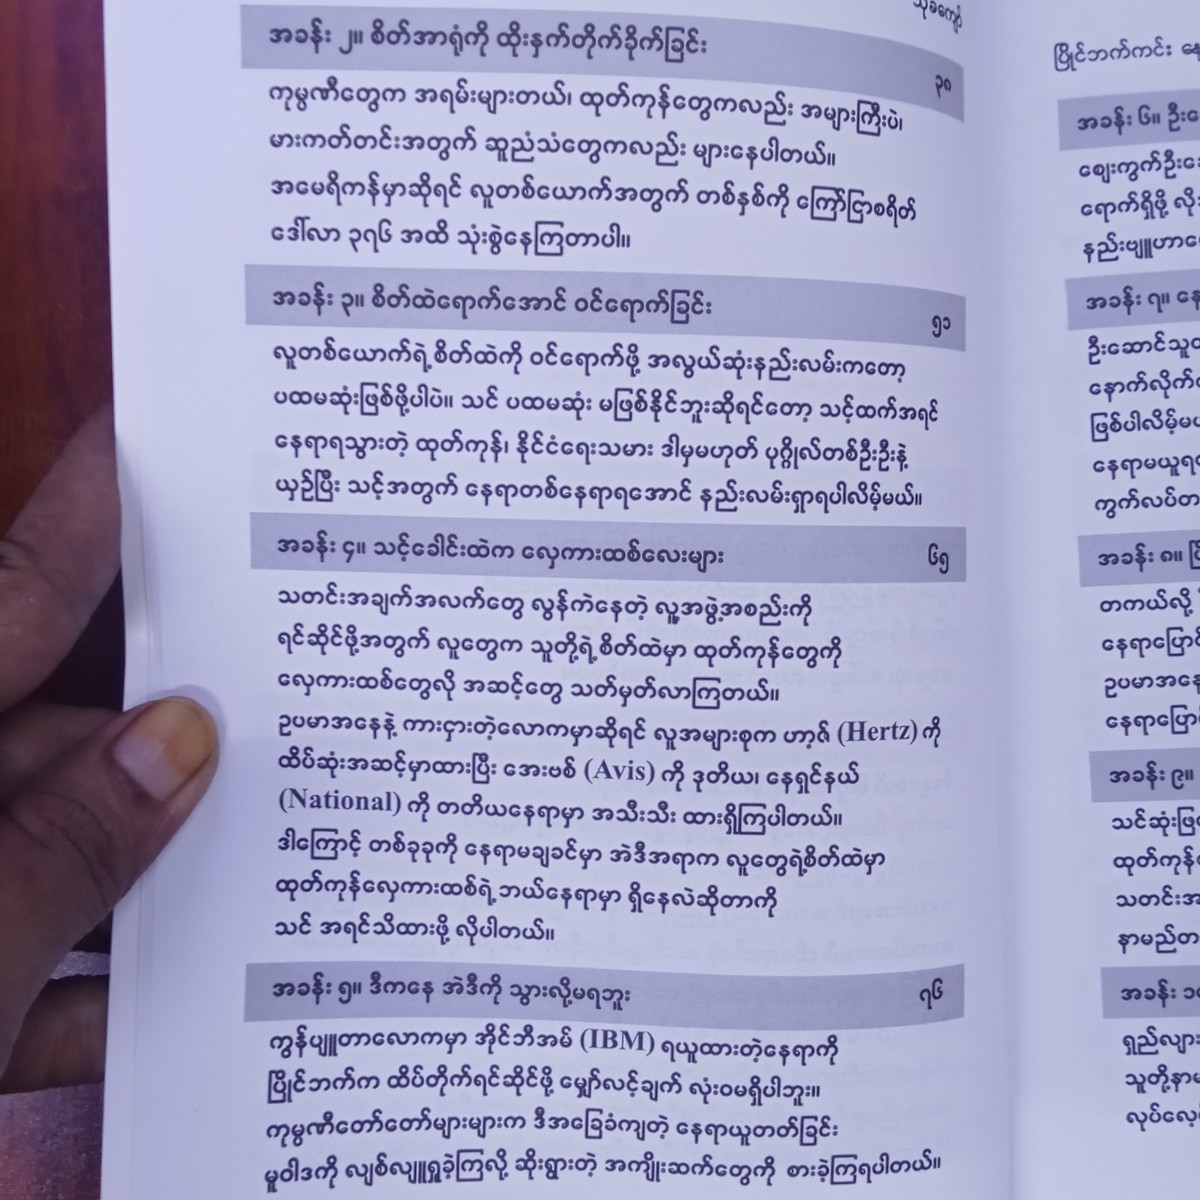 သုခကျော်
အခန်း ၂။ စိတ်အာရုံကို ထိုးနှက်တိုက်ခိုက်ခြင်း ၃၈
ကုမ္ပဏီတွေက အရမ်းများတယ်၊ ထုတ်ကုန်တွေကလည်း အများကြီးပဲ၊
မားကတ်တင်းအတွက် ဆူညံသံတွေကလည်း များနေပါတယ်။
အမေရိကန်မှာဆိုရင် လူတစ်ယောက်အတွက် တစ်နှစ်ကို ကြော်ငြာစရိတ်
ဒေါ်လာ ၃၇၆ အထိ သုံးစွဲနေကြတာပါ။
အခန်း ၃။ စိတ်ထဲရောက်အောင် ဝင်ရောက်ခြင်း ၅၁
လူတစ်ယောက်ရဲ့ စိတ်ထဲကို ဝင်ရောက်ဖို့ အလွယ်ဆုံးနည်းလမ်းကတော့
ပထမဆုံးဖြစ်ဖို့ပါပဲ။ သင် ပထမဆုံး မဖြစ်နိုင်ဘူးဆိုရင်တော့ သင့်ထက်အရင်
နေရာရသွားတဲ့ ထုတ်ကုန်၊ နိုင်ငံရေးသမား ဒါမှမဟုတ် ပုဂ္ဂိုလ်တစ်ဦးဦးနဲ့
ယှဉ်ပြီး သင့်အတွက် နေရာတစ်နေရာရအောင် နည်းလမ်းရှာရပါလိမ့်မယ်။
အခန်း ၄။ သင့်ခေါင်းထဲက လှေကားထစ်လေးများ ၆၅
သတင်းအချက်အလက်တွေ လွန်ကဲနေတဲ့ လူ့အဖွဲ့အစည်းကို
ရင်ဆိုင်ဖို့အတွက် လူတွေက သူတို့ရဲ့ စိတ်ထဲမှာ ထုတ်ကုန်တွေကို
လှေကားထစ်တွေလို အဆင့်တွေ သတ်မှတ်လာကြတယ်။
ဥပမာအနေနဲ့ ကားငှားတဲ့လောကမှာဆိုရင် လူအများစုက ဟာ့ဇ် (Hertz) ကို
ထိပ်ဆုံးအဆင့်မှာထားပြီး အေးဗစ် (Avis) ကို ဒုတိယ၊ နေရှင်နယ်
(National) ကို တတိယနေရာမှာ အသီးသီး ထားရှိကြပါတယ်။
ဒါကြောင့် တစ်ခုခုကို နေရာမချခင်မှာ အဲဒီအရာက လူတွေရဲ့စိတ်ထဲမှာ
ထုတ်ကုန်လှေကားထစ်ရဲ့ ဘယ်နေရာမှာ ရှိနေလဲဆိုတာကို
သင် အရင်သိထားဖို့ လိုပါတယ်။
အခန်း ၅။ ဒီကနေ အဲဒီကို သွားလို့မရဘူး ၇၆
ကွန်ပျူတာလောကမှာ အိုင်ဘီအမ် (IBM) ရယူထားတဲ့နေရာကို
ပြိုင်ဘက်က ထိပ်တိုက်ရင်ဆိုင်ဖို့ မျှော်လင့်ချက် လုံးဝမရှိပါဘူး။
ကုမ္ပဏီတော်တော်များများက ဒီအခြေခံကျတဲ့ နေရာယူတတ်ခြင်း
မူဝါဒကို လျစ်လျူရှုခဲ့ကြလို့ ဆိုးရွားတဲ့ အကျိုးဆက်တွေကို စားခဲ့ကြရပါတယ်။
ပြိုင်ဘက်ကင်း
အခန်း ၆။
ဈေးကွက်
ရောက်ရှိဖို့
အခန်း ၇။
ဦးဆောင်သူ
နောက်လိုက်
ဖြစ်ပါလိမ့်မ
နေရာမယူရ
ကွက်လပ်တ
အခန်း ၈။
တကယ်လို့
နေရာပြော
ဥပမာအနေ
နေရာပြော
အခန်း ၉။
သင်ဆုံးဖြ
ထုတ်ကုန်
သတင်းအ
နာမည်တ
အခန်း ၁
ရှည်လျား
သူတို့နာမ
လုပ်လေ့